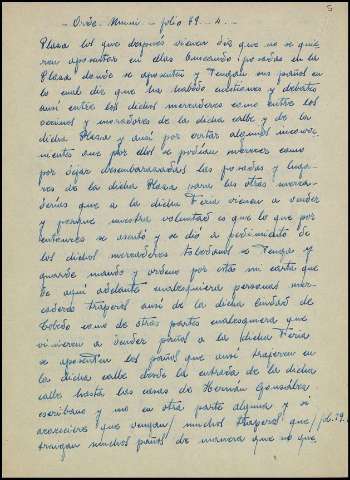 5
- Orde. Muni. - folio 79.. 4. -
Plaza los que después vienen diz que no se quie-
ren aposentar en ellas buscando posadas en la
Plaza donde se aposenten y tengan sus paños en
lo cual diz que ha habido cuestiones y debates
ansí entre los dichos mercaderes como entre los
vecinos y moradores de la dicha calle y de la
dicha Plaza y ansí por evitar algunos inconve-
nientes que por ellos se podían merecer como
por dejar desembarazadas las posadas y luga-
res de la dicha Plaza para las otras merca-
derías que a la dicha Feria vienen a vender
y porque nuestra voluntad es que lo que por
entonces se asentó y se dió a pedimiento de
los dichos mercaderes toledanos se tenga y
guarde mando y ordeno por esta mi carta que
de aquí adelante cualesquiera personas mer-
caderes traperos ansí de la dicha ciudad de
Toledo como de otras partes cualesquiera que
vinieren a vender paños a la dicha Feria
se aposenten los paños que ansí trajeren en
la dicha calle desde la entrada de la dicha
calle hasta las casas de Hernán González
escribano y no en otra parte alguna y si
acaeciere que vengan muchos traperos que/fol.79..
traigan muchos paños de manera que no que